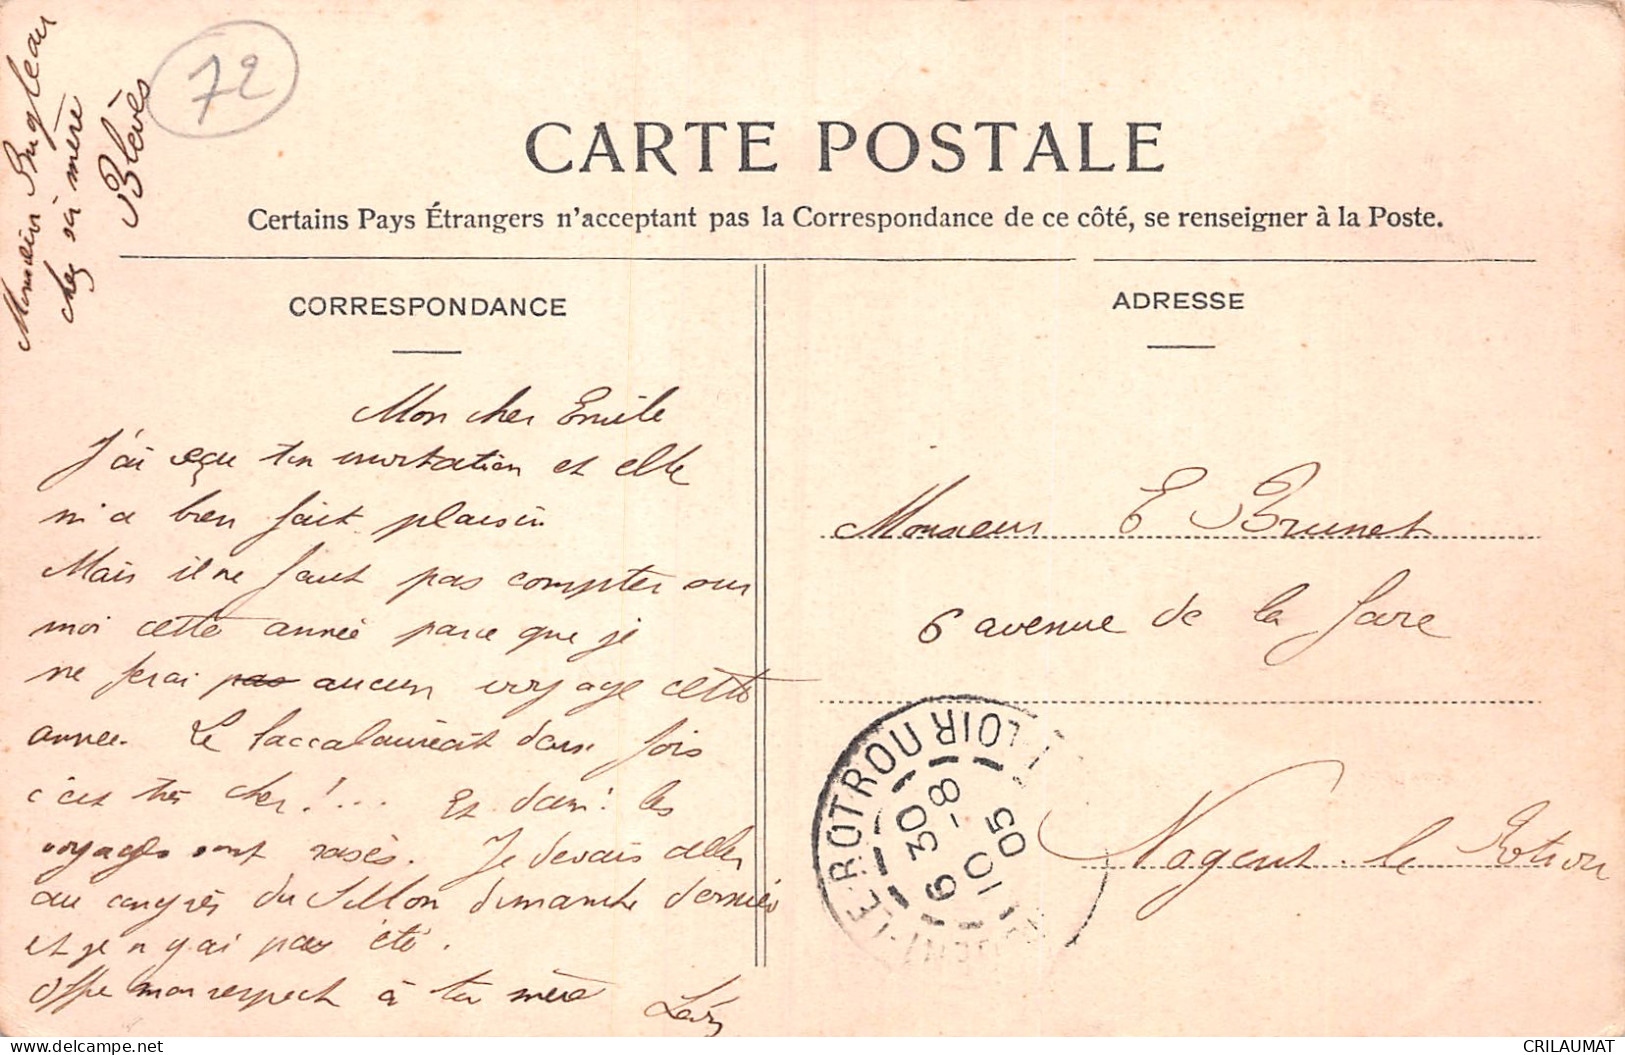 Monsieur Bugleau
chez sa mère
Blèves
72
CARTE POSTALE
Certains Pays Étrangers n'acceptant pas la Correspondance de ce côté, se renseigner à la Poste.
CORRESPONDANCE
Mon cher Emile
J'ai reçu ton invitation et elle
m'a bien fait plaisir
Mais il ne faut pas compter sur
moi cette année parce que je
ne ferai pas aucun voyage cette
année. Le baccalauréat deux fois
c'est très cher!... Et dam! les
voyages sont rasés. Je devais aller
au congrès du Sillon dimanche dernier
et je n'y ai pas été.
Offre mon respect à ta mère
Léon
ADRESSE
Monsieur E Brunet
6 avenue de la Gare
Nogent-le Rotrou
LE ROTROU
LOIR
6 30
10 -8
05
CRILAUMAT